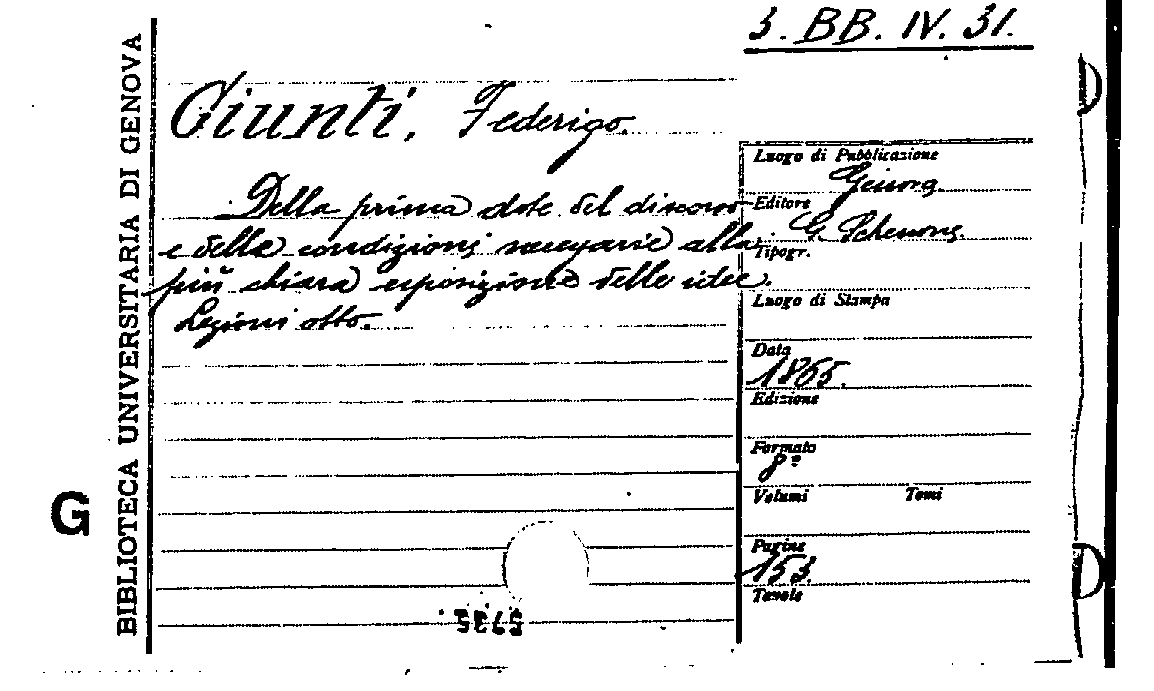 3. BB. IV. 31.
BIBLIOTECA UNIVERSITARIA DI GENOVA
G
Giunti, Federigo.
Della prima dote del discorso
e delle condizioni necessarie alla
più chiara esposizione delle idee.
Lezioni otto.
Luogo di Pubblicazione
Genova.
Editore
G. Schenone.
Tipogr.
Luogo di Stampa
Data
1865.
Edizione
Formato
8º
Volumi Tomi
Pagine
153.
Tavole